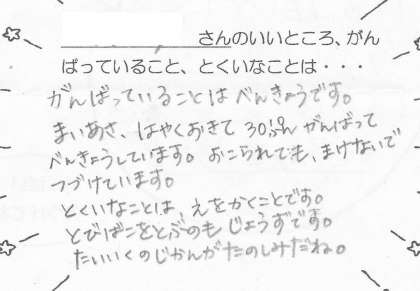 さんのいいところ、がん
ばっていること、とくいなことは・・・
がんばっていることはべんきょうです。
まいあさ、はやくおきて30ぷんがんばって
べんきょうしています。おこられても、まけないで
つづけています。
とくいなことは、えをかくことです。
とびばこをとぶのもじょうずです。
たいいくのじかんがたのしみだね。